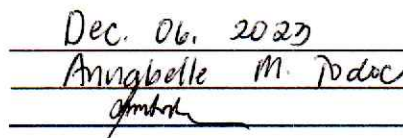 Dec. 06. 2023
Annabelle M. Todoc